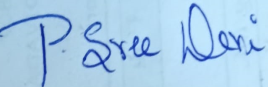 P. Sree Devi